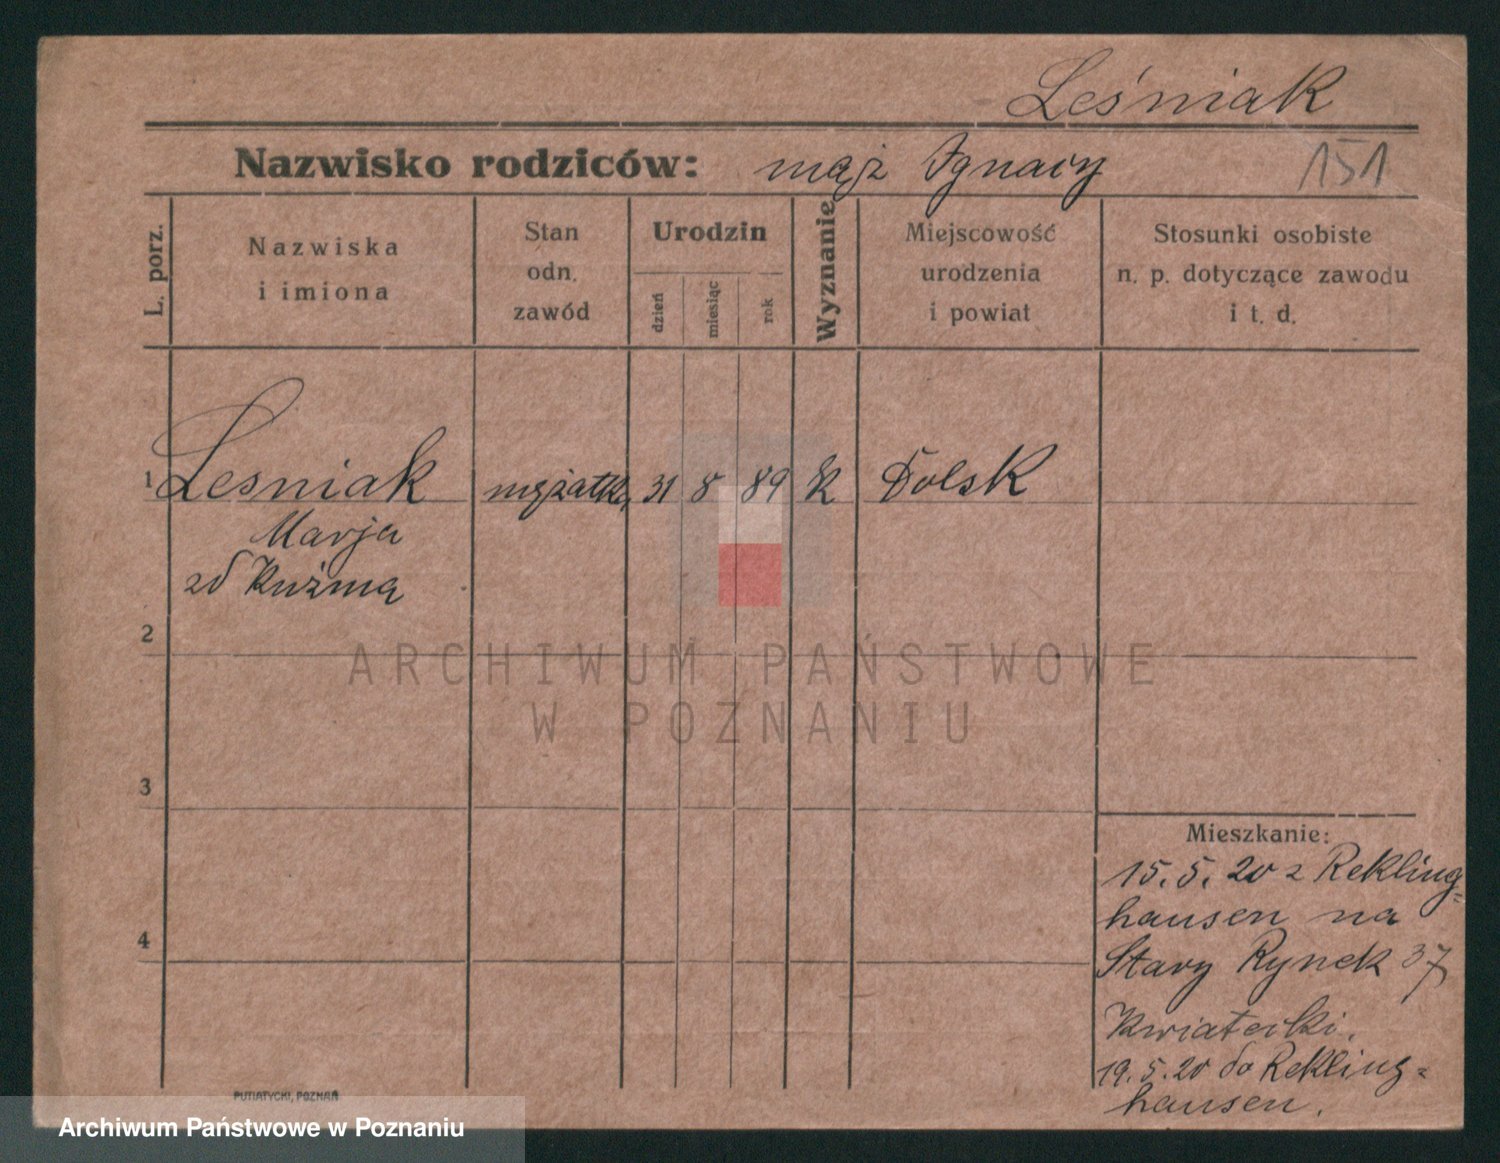 Leśniak
Nazwisko rodziców: mąż Ignacy 151
L. porz.
Nazwiska
i imiona
Stan
odn.
zawód
Urodzin
dzień
miesiąc
rok
Wyznanie
Miejscowość
urodzenia
i powiat
Stosunki osobiste
n. p. dotyczące zawodu
i t. d.
1 Lesniak mężatka 31 8 89 k Dolsk
Marja
zd Kuźma
2
ARCHIWUM PAŃSTWOWE
W POZNANIU
3
4
Mieszkanie:
15.5.20 z Rekling=
hausen na
Stary Rynek 37
Kwiatecki.
19.5.20 do Rekling=
hausen.
PUTIATYCKI, POZNAŃ
Archiwum Państwowe w Poznaniu